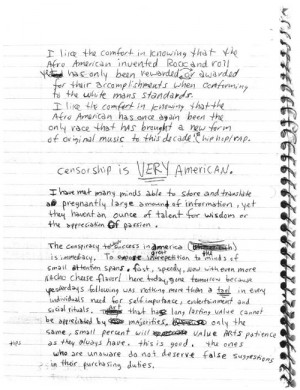 I like the comfort in knowing that the
Afro American invented Rock and roll
yet has only been rewarded or awarded
for their accomplishments when conforming
to the white mans standards.
I like the comfort in knowing that the
Afro American has once again been the
only race that has brought a new form
of original music to this decade (hiphip/rap.
censorship is VERY American.
I have met many minds able to store and translate
a pregnantly large amount of information, yet
they havent an ounce of talent for wisdom or
the appreciation of passion.
The conspiracy success in america
is immediacy. To expose in great repetition to the minds of
small attention spans. fast, speedy, now with even more
nacho cheese flavor! here today, gone tomorrow because
yesterdays following was nothing more than a tool in every
individuals need for self importance, entertainment and
social rituals. that has long lasting value cannot
be appreciated by majorities, only the
same, small percent will value ARTS patience
as they always have. this is good. the ones
who are unaware do not deserve false suggestions
in their purchasing duties.